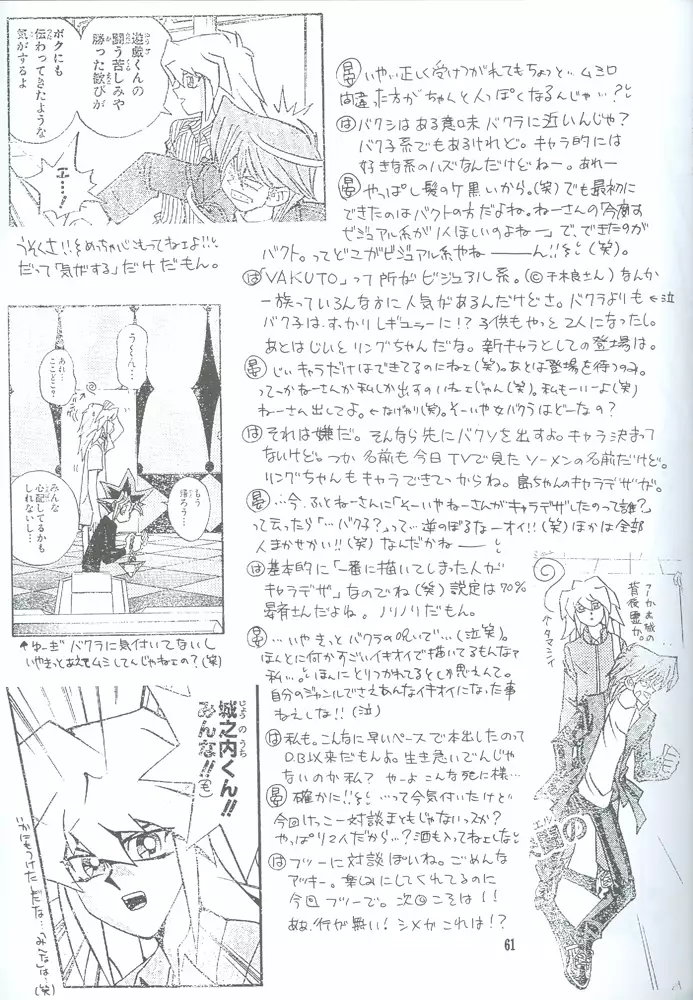 遊戯くんの
闘う苦しみや
勝った歓びが
ボクにも
伝わってきたような
気がするよ
エ…!
うそくさ!!をめちゃいれってねェよ!!
だって「気がする」だけだもん。
う〜ん…
あれ…
ここどこ?
もう
帰ろう…
みんな
心配してるかも
しれないし…
↑ゆーぎバクラに気付いてないし
いやきっとあえてムシしてんじゃねェの?(笑)
城之内くん!!
みんな!!も
「みんな」は…(笑)
晏 いや、正しく受けつがれてもちょっと…ムシロ
間違った方がちゃんと人っぽくなるんじゃ…?
は バクシはある意味バクラに近いんじゃ?
バク子系でもあるけれど。キャラ的には
好きな系のハズなんだけどねー。あれー
晏 やっぱし髪の毛黒いから。(笑)でも最初に
できたのはバクトの方だよね。ねーさんの「今度す
ビジュアル系が1人ほしいのよねー」で、できたのが
バクト。ってどこがビジュアル系やねーーーん!!(笑)。
は「VAKUTO」って所がビジュアル系。(©千木良さん)なんか
一族っているんなかに人気があるんだけどさ。バクラよりも←泣
バク子は、すっかりレギュラーに!?子供もやっと2人になったし。
あとはじいとリングちゃんだな。新キャラとしての登場は。
晏 じいキャラだけはできてるのにねェ(笑)。あとは登場を待つのみ。
ってーかねーさんか私しか出すのいねェじゃん(笑)。私も一一よ(笑)
ねーさん出してよ。←なげやり(笑)。そーいや女バクラはどーなの?
は それは嫌だ。そんなら先にバクソを出すよ。キャラ決まって
ないけど。つか名前も今日TVで見たソーメンの名前だけど。
リングちゃんもキャラできてっからね。島ちゃんのキャラデザが。
晏 …今、ふとねーさんに「そーいやねーさんがキャラデザしたのって誰?」
って云ったら「…バク子?」って…逆のぼるなーオイ!!(笑)ほかは全部
人まかせかい!!(笑)なんだかねーー
は 基本的に「一番に描いてしまった人が
キャラデザ」なのでね(笑)設定は70%
晏斉さんだよね。ノリノリだもん。
晏 …いやきっとバクラの呪いで…(泣笑)。
ほんとに何かすごいイキオイで描いてるもんなァ
私…。ほんにとりつかれてるとしか思えんて。
自分のジャンルでさえあんなイキオイになった事
ねえしな!!(泣)
は 私も。こんなに早いペースで本出したのって
D.B以来だもんよ。生き急いでんじゃ
ないのか私?やーよこんな死に様…
晏 確かに!!…って今気付いたけど
今回けっこー対談まともじゃないっスか?
やっぱり2人だから…?酒も入ってねェしな
は フツーに対談ぽいね。ごめんな
アッキー。楽しみにしてくれてるのに
今回フツーで。次回こそは!!
あぁ、行が無い!シメがこれは!?
背後霊か。
←タマシイ
61